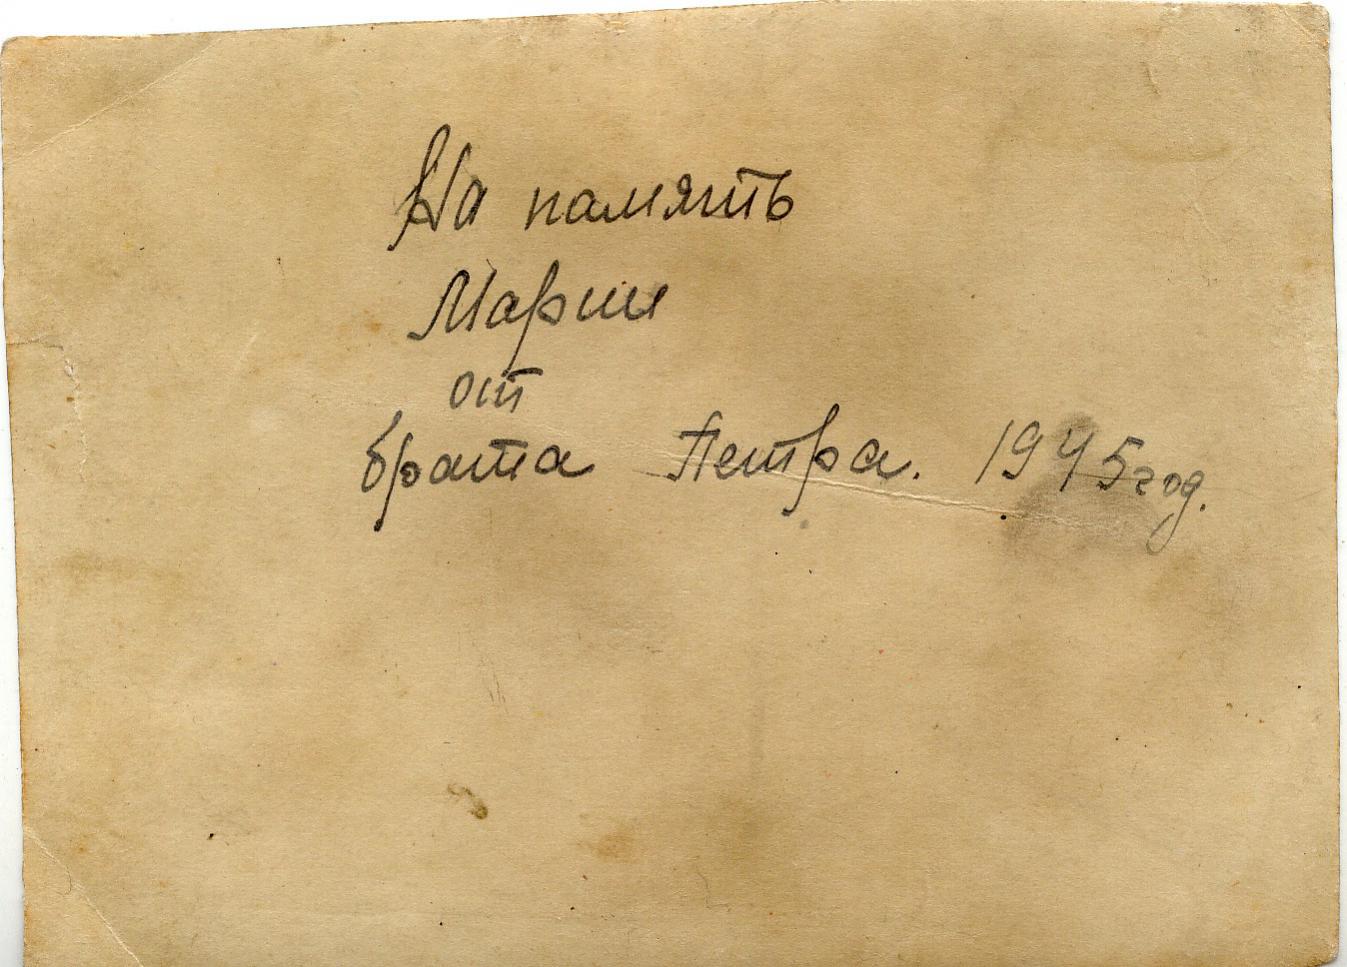 На память
Марии
от
брата Петра. 1945 год.